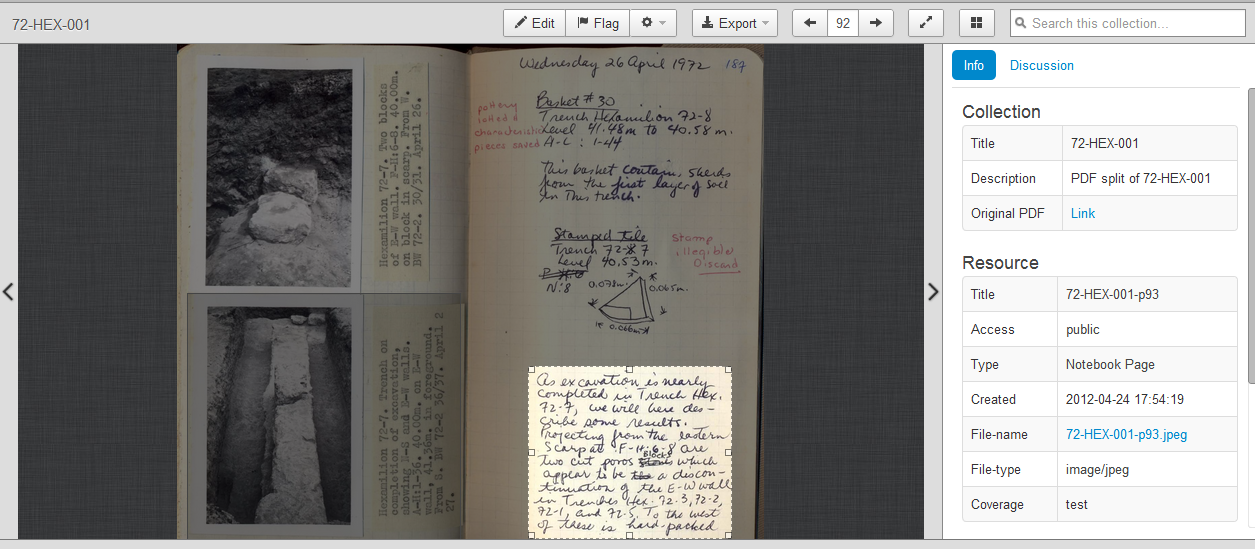 72-HEX-001
Edit
Flag
Export
92
Search this collection...
Hexamilion 72-7. Two blocks
of E-W wall. F-H:6-8. 40.00m.
on block in scarp. From W.
BW 72-2. 30/31. April 26.
Hexamilion 72-7. Trench on
completion of excavation,
showing N-S and E-W walls.
A-H:1-36. 40.00m. on E-W
wall, 41.36m. in foreground.
From S. BW 72-2 36/37. April 2
27.
Wednesday 26 April 1972 187
pottery
lotted &
characteristic
pieces saved
Basket #30
Trench Hexamilion 72-8
Level 41.48m to 40.58 m.
A-L : 1-44
This basket contains sherds
from the first layer of soil
in this trench.
Stamped tile
Trench 72-7
Level 40.53m.
N:8
Stamp
illegible
Discard
0.078m.
0.065m.
0.066m
As excavation is nearly
completed in Trench Hex.
72-7, we will here des-
cribe some results.
Projecting from the eastern
Scarp at F-H:6-8 are
two cut poros blocks which
appear to be a discon-
tinuation of the E-W wall
in Trenches Hex. 72-3, 72-2,
72-1, and 72-5. To the west
of these is hard-packed
Info
Discussion
Collection
Title 72-HEX-001
Description PDF split of 72-HEX-001
Original PDF Link
Resource
Title 72-HEX-001-p93
Access public
Type Notebook Page
Created 2012-04-24 17:54:19
File-name 72-HEX-001-p93.jpeg
File-type image/jpeg
Coverage test